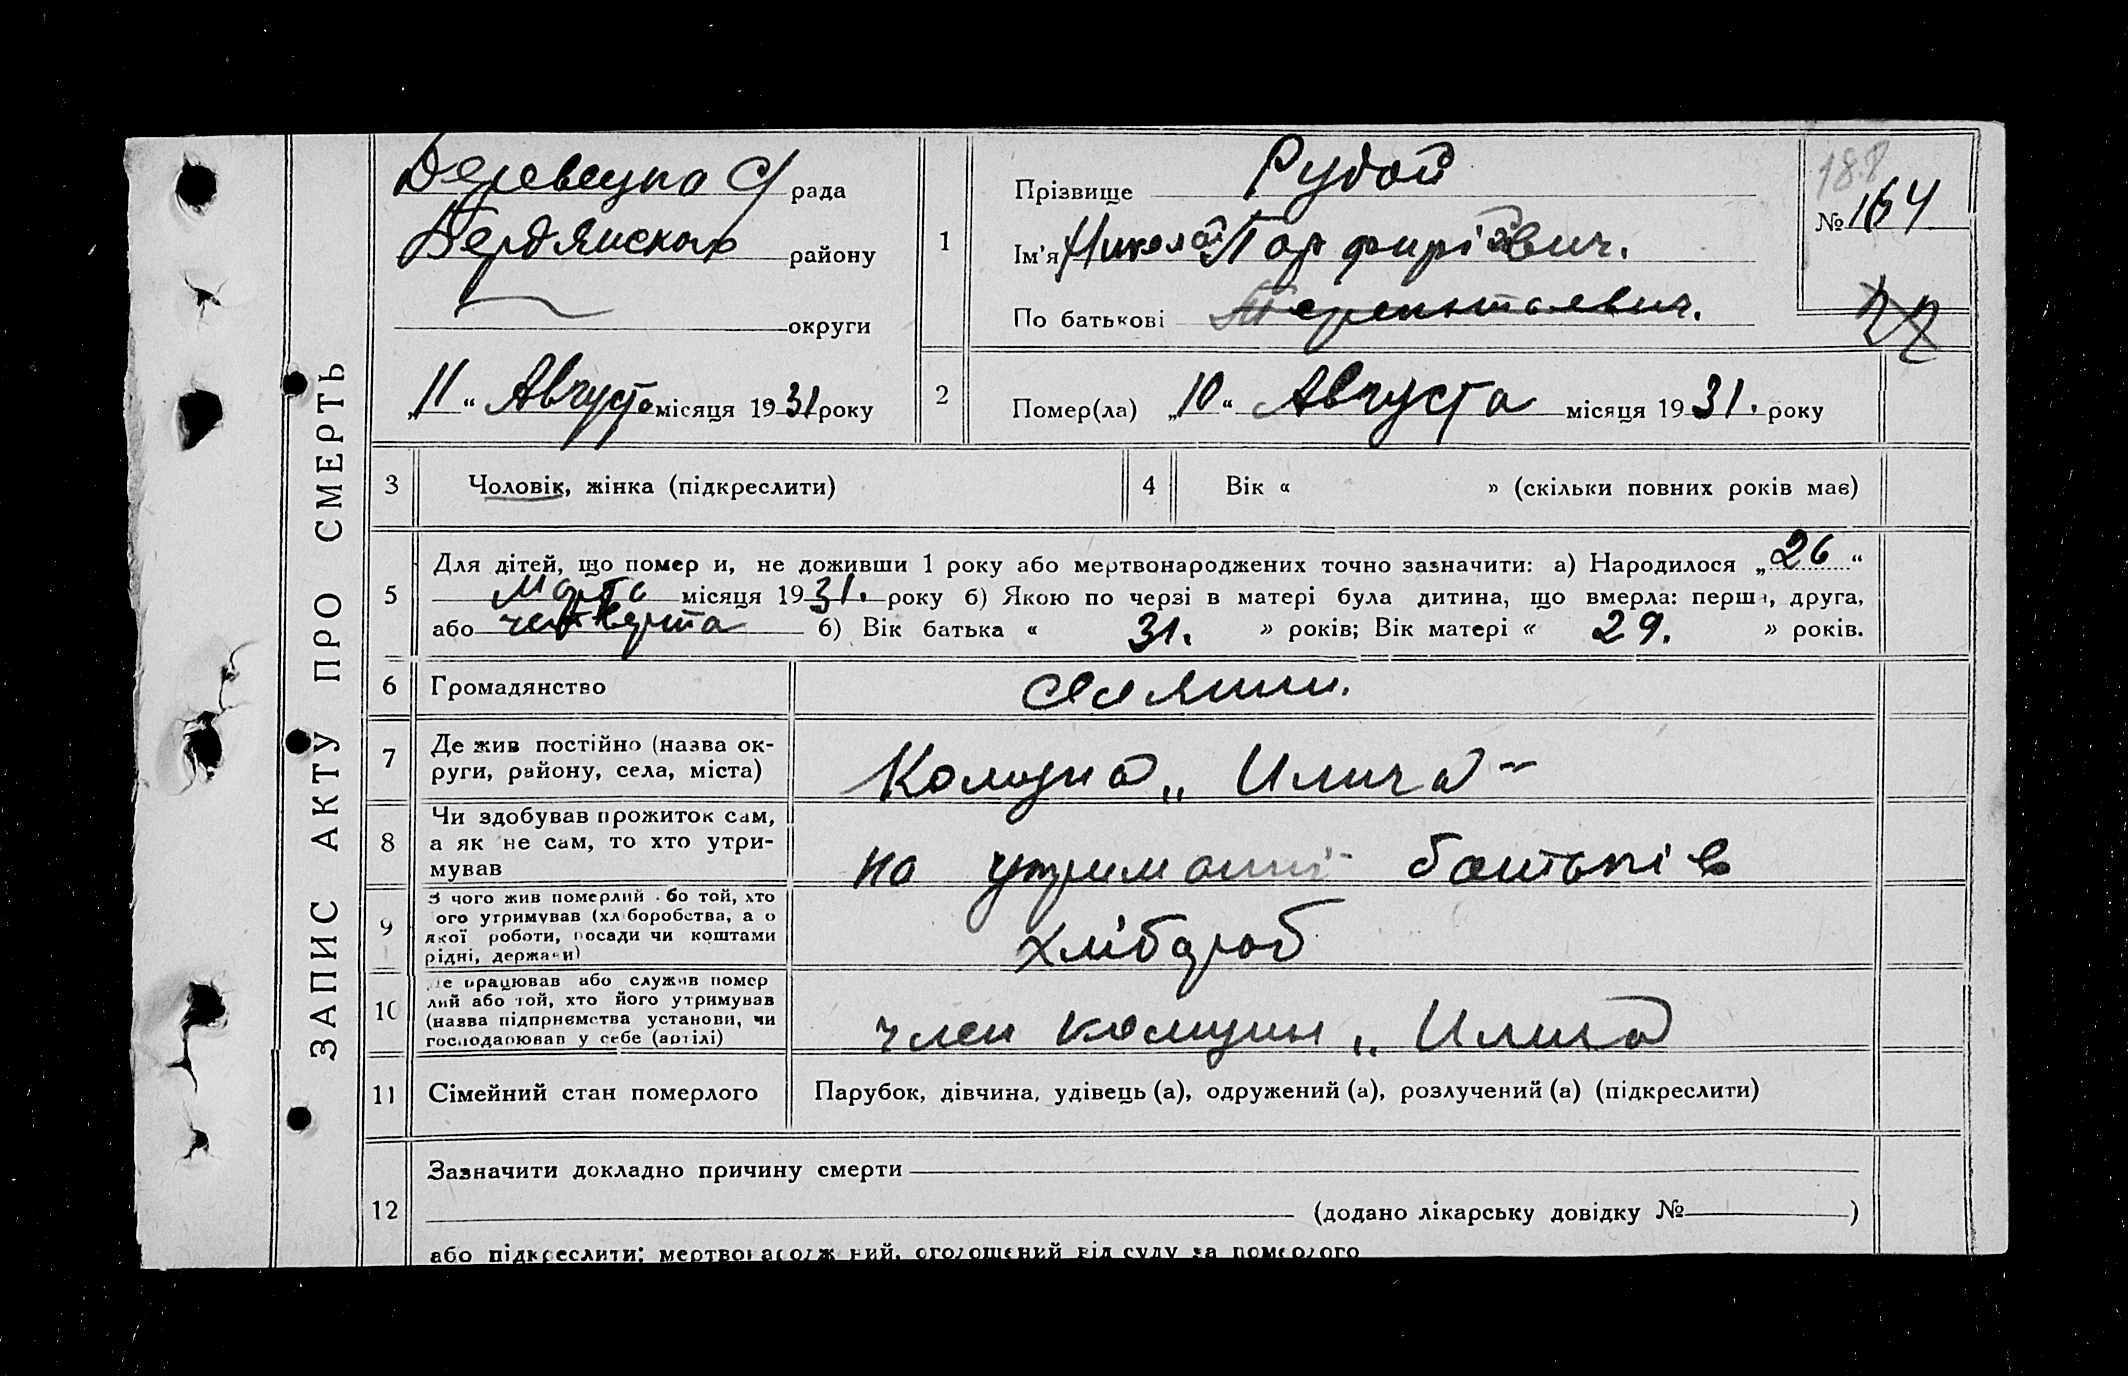 ЗАПИС АКТУ ПРО СМЕРТЬ
рада
Бердянского району
округи
„11“ Августа місяця 1931 року
1
Прізвище Рудой
Ім'я Николай Порфирієвич.
По батькові Терентьевич.
188
№ 164
22
2
Помер(ла) „10“ Августа місяця 1931. року
3
Чоловік, жінка (підкреслити)
4
Вік « » (скільки повних років має)
5
Для дітей, що помер и, не доживши 1 року або мертвонароджених точно зазначити: а) Народилося „26“
Марта місяця 1931. року б) Якою по черзі в матері була дитина, що вмерла: перша, друга,
або четверта б) Вік батька « 31. » років; Вік матері « 29. » років.
6
Громадянство селянин.
7
Де жив постійно (назва ок-
руги, району, села, міста)
Комуна „Илича“
8
Чи здобував прожиток сам,
а як не сам, то хто утри-
мував
на утриманні батьків
9
З чого жив померлий або той, хто
ого утримував (хліборобства, а о
якої роботи, посади чи коштами
рідні, держави)
хлібороб
10
Де працював або служив помер
лий або той, хто його утримував
(назва підприємства установи, чи
господарював у себе (артілі)
член комуни „Илича
11
Сімейний стан померлого
Парубок, дівчина, удівець (а), одружений (а), розлучений (а) (підкреслити)
12
Зазначити докладно причину смерти
(додано лікарську довідку № )
або підкреслити: мертвонароджений, оголошений від суду за померлого